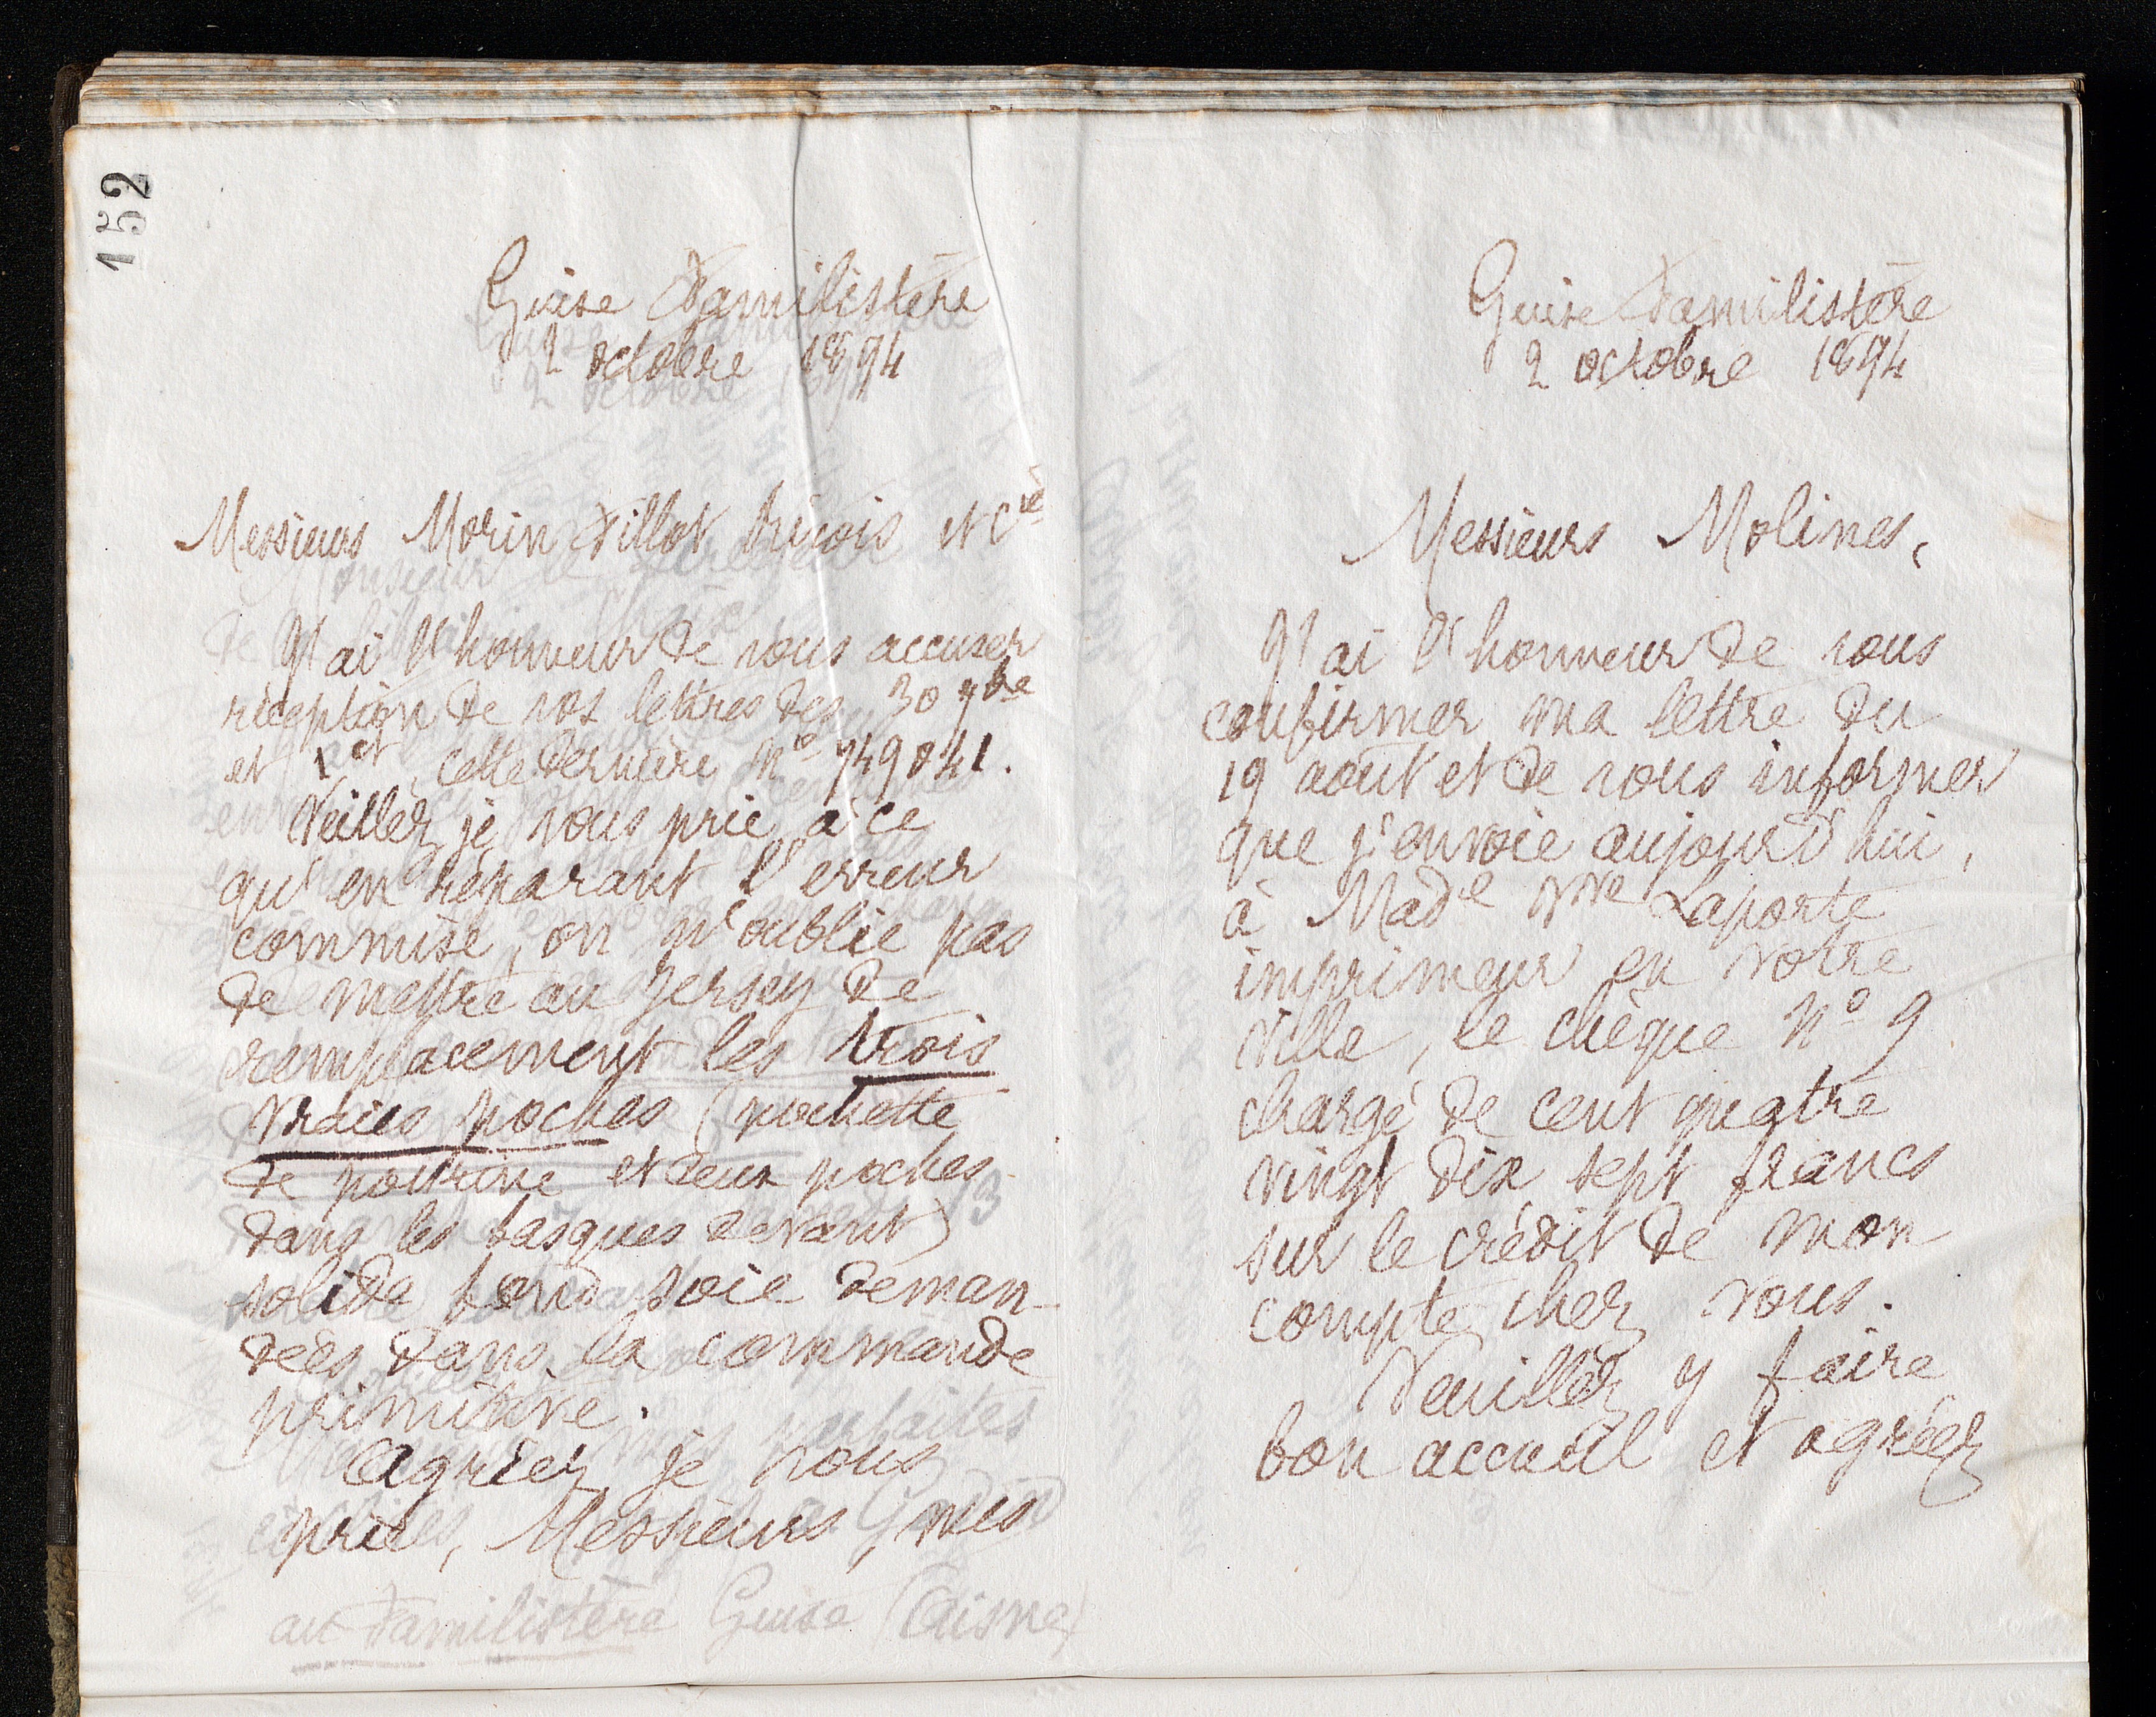 152
Guise Familistère
2 octobre 1894
Messieurs Morin Fillot Fricois et Cie
J'ai l'honneur de vous accuser
réception de vos lettres des 30 7bre
et 1er ct, cette dernière No 749041.
Veillez, je vous prie, à ce
qu'en réparant l'erreur
commise, on n'oublie pas
de mettre au Jersey de
remplacement les trois
vraies poches (pochette
de poitrine et deux poches
dans les basques devant)
solide fond soie deman-
dées dans la commande
primitive.
Agréez, je vous
prie, Messieurs, mes
au Familistère Guise (Aisne)
Guise Familistère
2 octobre 1894
Messieurs Molines,
J'ai l'honneur de vous
confirmer ma lettre du
19 août et de vous informer
que j'envoie aujourd'hui,
à Made Vve Laporte
imprimeur en votre
ville, le chèque No 9
chargé de cent quatre
vingt dix sept francs
sur le crédit de mon
compte chez vous.
Veuillez y faire
bon accueil et agréez